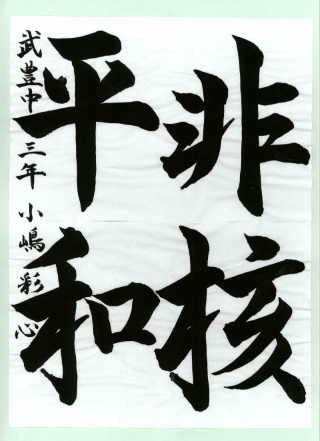 非核
平和
武豊中 三年 小嶋彩心